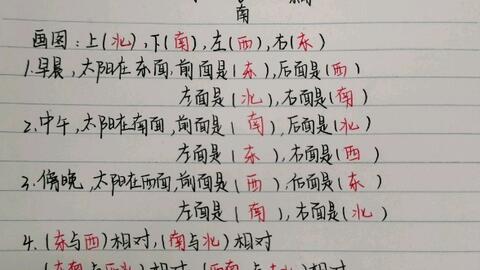 南
画图：上(北)，下(南)，左(西)，右(东)
1.早晨，太阳在东面，前面是(东)，后面是(西)
左面是(北)，右面是(南)
2.中午，太阳在南面，前面是(南)，后面是(北)
左面是(东)，右面是(西)
3.傍晚，太阳在西面，前面是(西)，后面是(东)
左面是(南)，右面是(北)
4.(东与西)相对，(南与北)相对